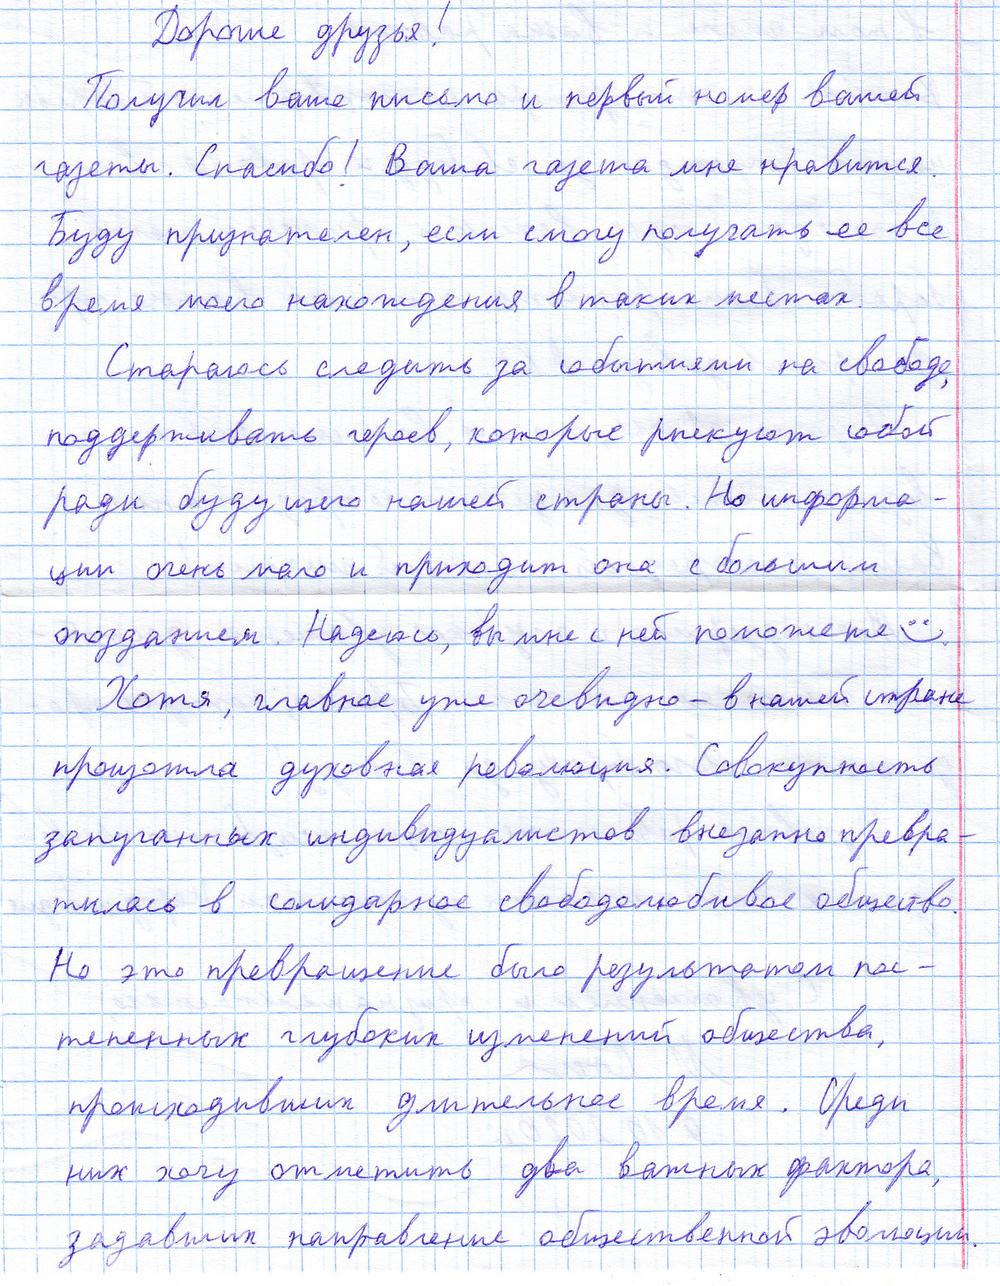 Дорогие друзья!
Получил ваше письмо и первый номер вашей
газеты. Спасибо! Ваша газета мне нравится.
Буду признателен, если смогу получать ее все
время моего нахождения в таких местах.
Стараюсь следить за событиями на свободе,
поддерживать героев, которые рискуют собой
ради будущего нашей страны. Но информа-
ции очень мало и приходит она с большим
опозданием. Надеюсь, вы мне с ней поможете
Хотя, главное уже очевидно – в нашей стране
произошла духовная революция. Совокупность
запуганных индивидуалистов внезапно превра-
тилась в солидарное свободолюбивое общество.
Но это превращение было результатом пос-
тепенных глубоких изменений общества,
происходивших длительное время. Среди
них хочу отметить два важных фактора,
задавших направление общественной эволюции.